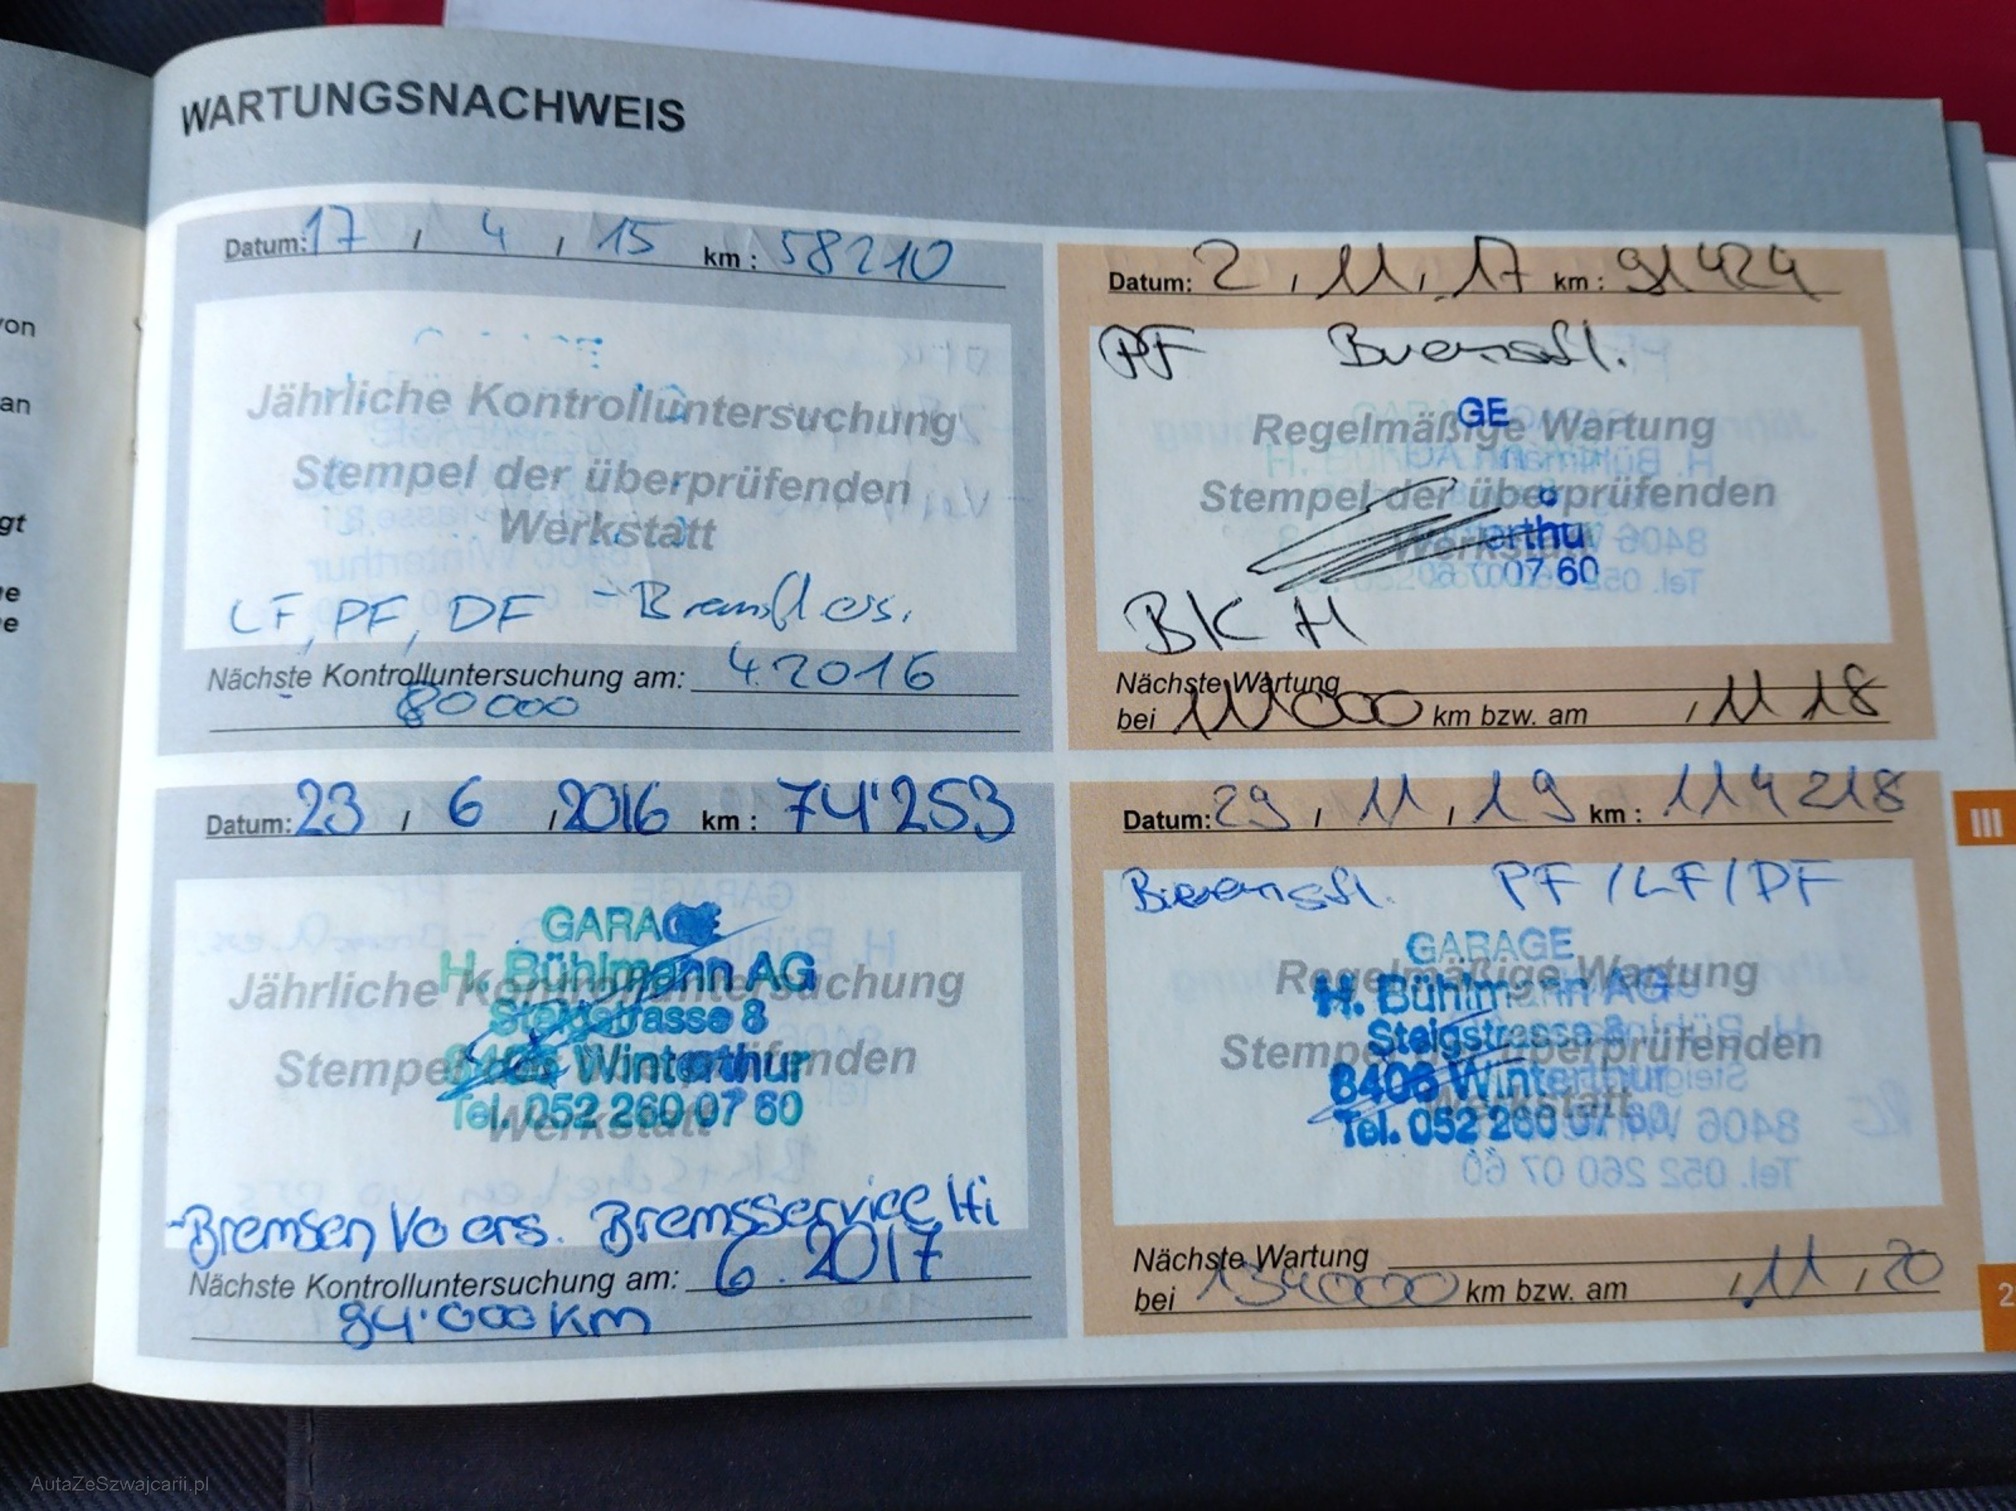 von
an
gt
e
e
WARTUNGSNACHWEIS
Datum: 17 , 4 , 15 km : 58210
Jährliche Kontrolluntersuchung
Stempel der überprüfenden
Werkstatt
LF, PF, DF - Bremsfl ers.
Nächste Kontrolluntersuchung am: 4.2016
80000
Datum: 23 , 6 , 2016 km : 74'253
GARAGE
H. Bühlmann AG
Jährliche Kontrolluntersuchung
Steigstrasse 8
Stempel der überprüfenden
8406 Winterthur
Tel. 052 260 07 60
Werkstatt
-Bremsen Vo ers. Bremsservice Hi
Nächste Kontrolluntersuchung am: 6.2017
94'000 km
Datum: 2 , 11 , 17 km : 91424
PF Bremsfl.
GE
Regelmäßige Wartung
Stempel der überprüfenden
Werkstatt
erthu
07 60
BK H
Nächste Wartung
bei 111000 km bzw. am , 11 18
Datum: 29 , 11 , 19 km : 114218
Bremsfl. PF / LF / DF
GARAGE
Regelmäßige Wartung
H. Bühlmann AG
Steigstrasse 8
Stempel der überprüfenden
8406 Winterthur
Werkstatt
Tel. 052 260 07 60
Nächste Wartung
bei 134000 km bzw. am , 11 , 20
III
2
AutaZeSzwajcarii.pl